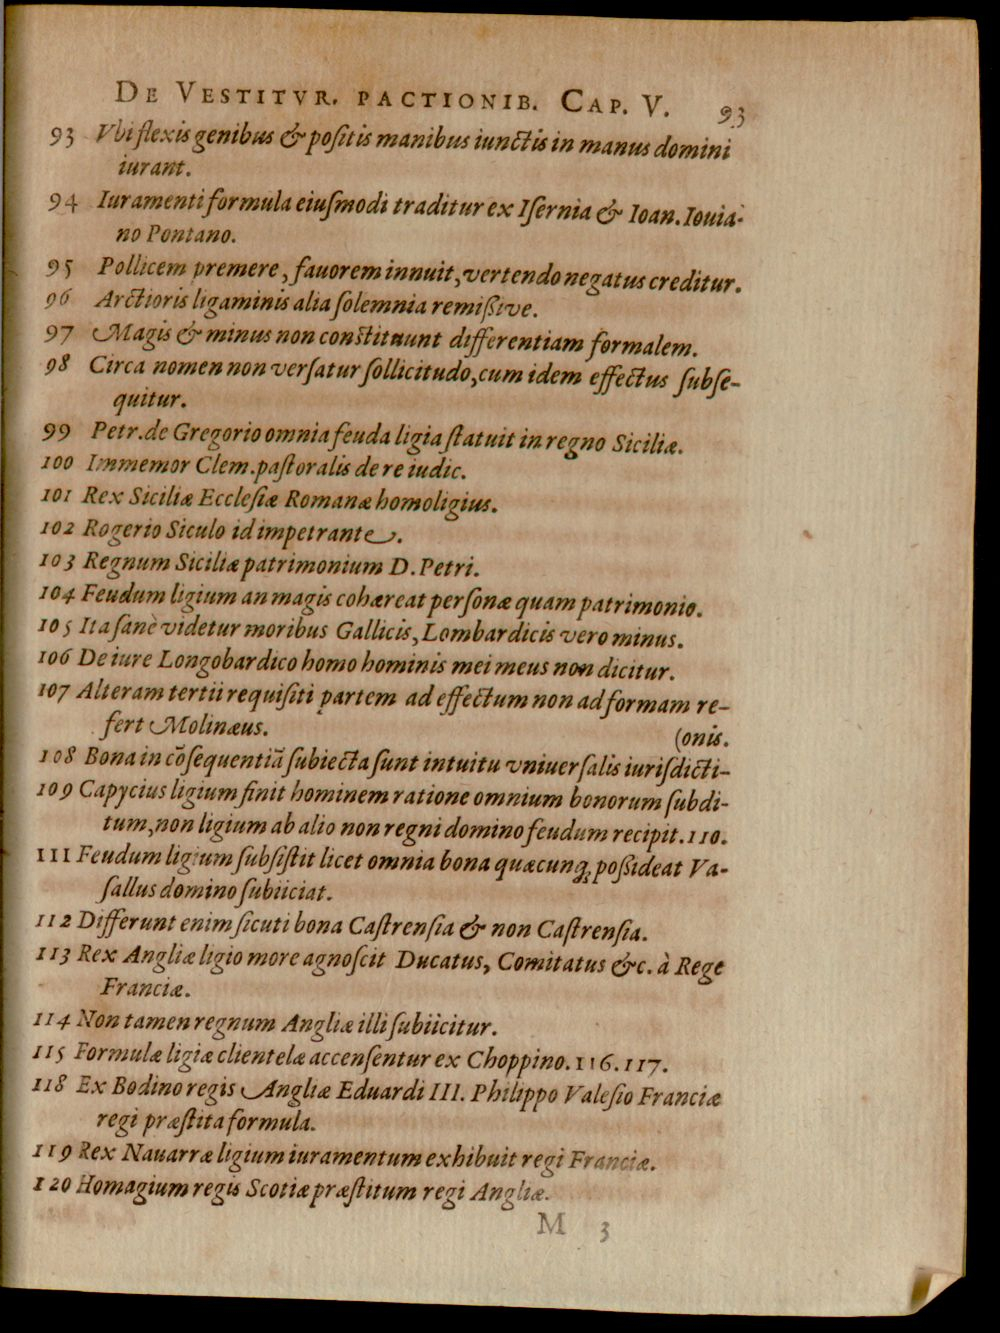 DE VESTITVR. PACTIONIB. CAP. V. 93
93 Vbi flexis genibus & positis manibus iunctis in manus domini
iurant.
94 Iuramenti formula eiusmodi traditur ex Isernia & Ioan. Iouia-
no Pontano.
95 Pollicem premere, fauorem innuit, vertendo negatus creditur.
96 Arctioris ligaminis alia solemnia remißive.
97 Magis & minus non constituunt differentiam formalem.
98 Circa nomen non versatur sollicitudo, cum idem effectus subse-
quitur.
99 Petr. de Gregorio omnia feuda ligia statuit in regno Siciliæ.
100 Immemor Clem. pastoralis de re iudic.
101 Rex Siciliæ Ecclesiæ Romanæ homoligius.
102 Rogerio Siculo id impetrante.
103 Regnum Siciliæ patrimonium D. Petri.
104 Feudum ligium an magis cohæreat personæ quam patrimonio.
105 Ita sanè videtur moribus Gallicis, Lombardicis vero minus.
106 De iure Longobardico homo hominis mei meus non dicitur.
107 Alteram tertii requisiti partem ad effectum non ad formam re-
fert Molinæus. (onis.
108 Bona in cõsequentiã subiecta sunt intuitu vniuersalis iurisdicti-
109 Capycius ligium finit hominem ratione omnium bonorum subdi-
tum, non ligium ab alio non regni domino feudum recipit. 110.
111 Feudum ligium subsistit licet omnia bona quæcunq; poßideat Va-
sallus domino subiiciat.
112 Differunt enim sicuti bona Castrensia & non Castrensia.
113 Rex Angliæ ligio more agnoscit Ducatus, Comitatus &c. à Rege
Franciæ.
114 Non tamen regnum Angliæ illi subiicitur.
115 Formulæ ligiæ clientelæ accensentur ex Choppino. 116. 117.
118 Ex Bodino regis Angliæ Eduardi III. Philippo Valesio Franciæ
regi præstita formula.
119 Rex Nauarræ ligium iuramentum exhibuit regi Franciæ.
120 Homagium regis Scotiæ præstitum regi Angliæ.
M 3